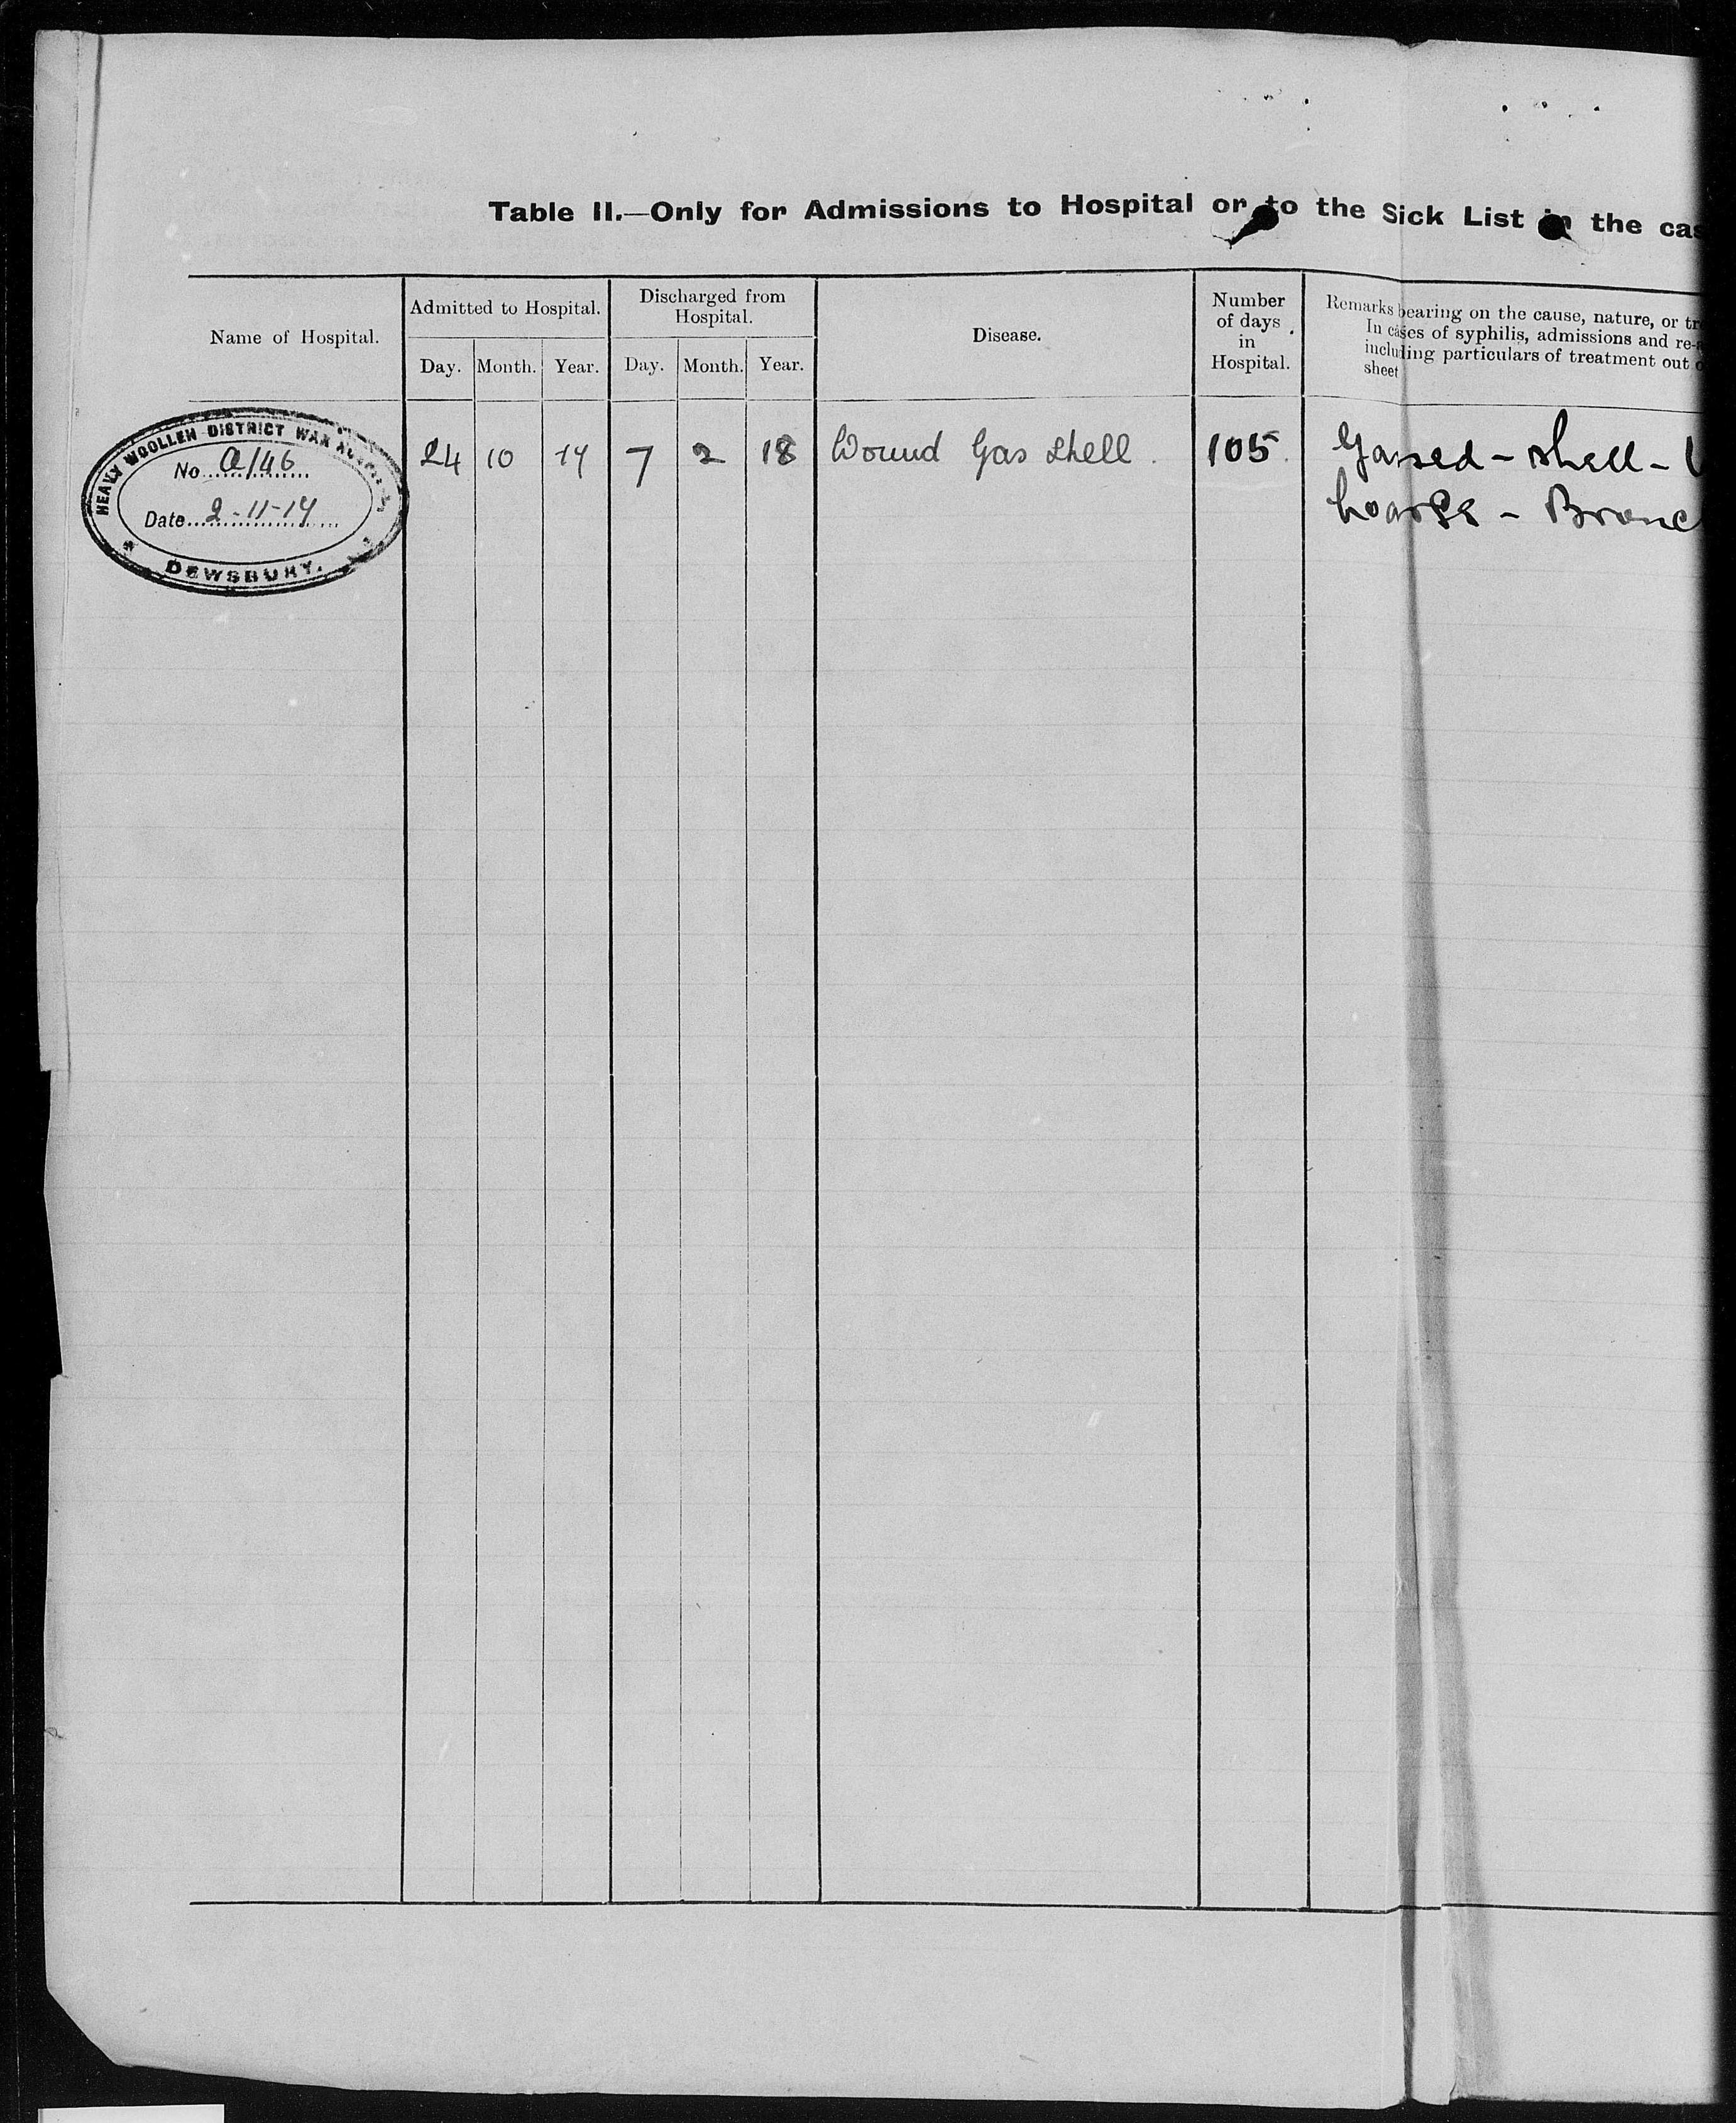 Table II.—Only for Admissions to Hospital or to the Sick List in the
Name of Hospital.
Admitted to Hospital.
Discharged from
Hospital.
Disease.
Number
of days
in
Hospital.
Remarks bearing on the cause, nature, or
In cases of syphilis, admissions and
including particulars of treatment out
sheet
Day. Month. Year. Day. Month. Year.
HEAVY WOOLLEN DISTRICT WAR
No. a/46
Date 2-11-17
DEWSBURY.
24 10 17 7 2 18 Wound Gas Shell. 105. Gassed - shell -
hoarse -